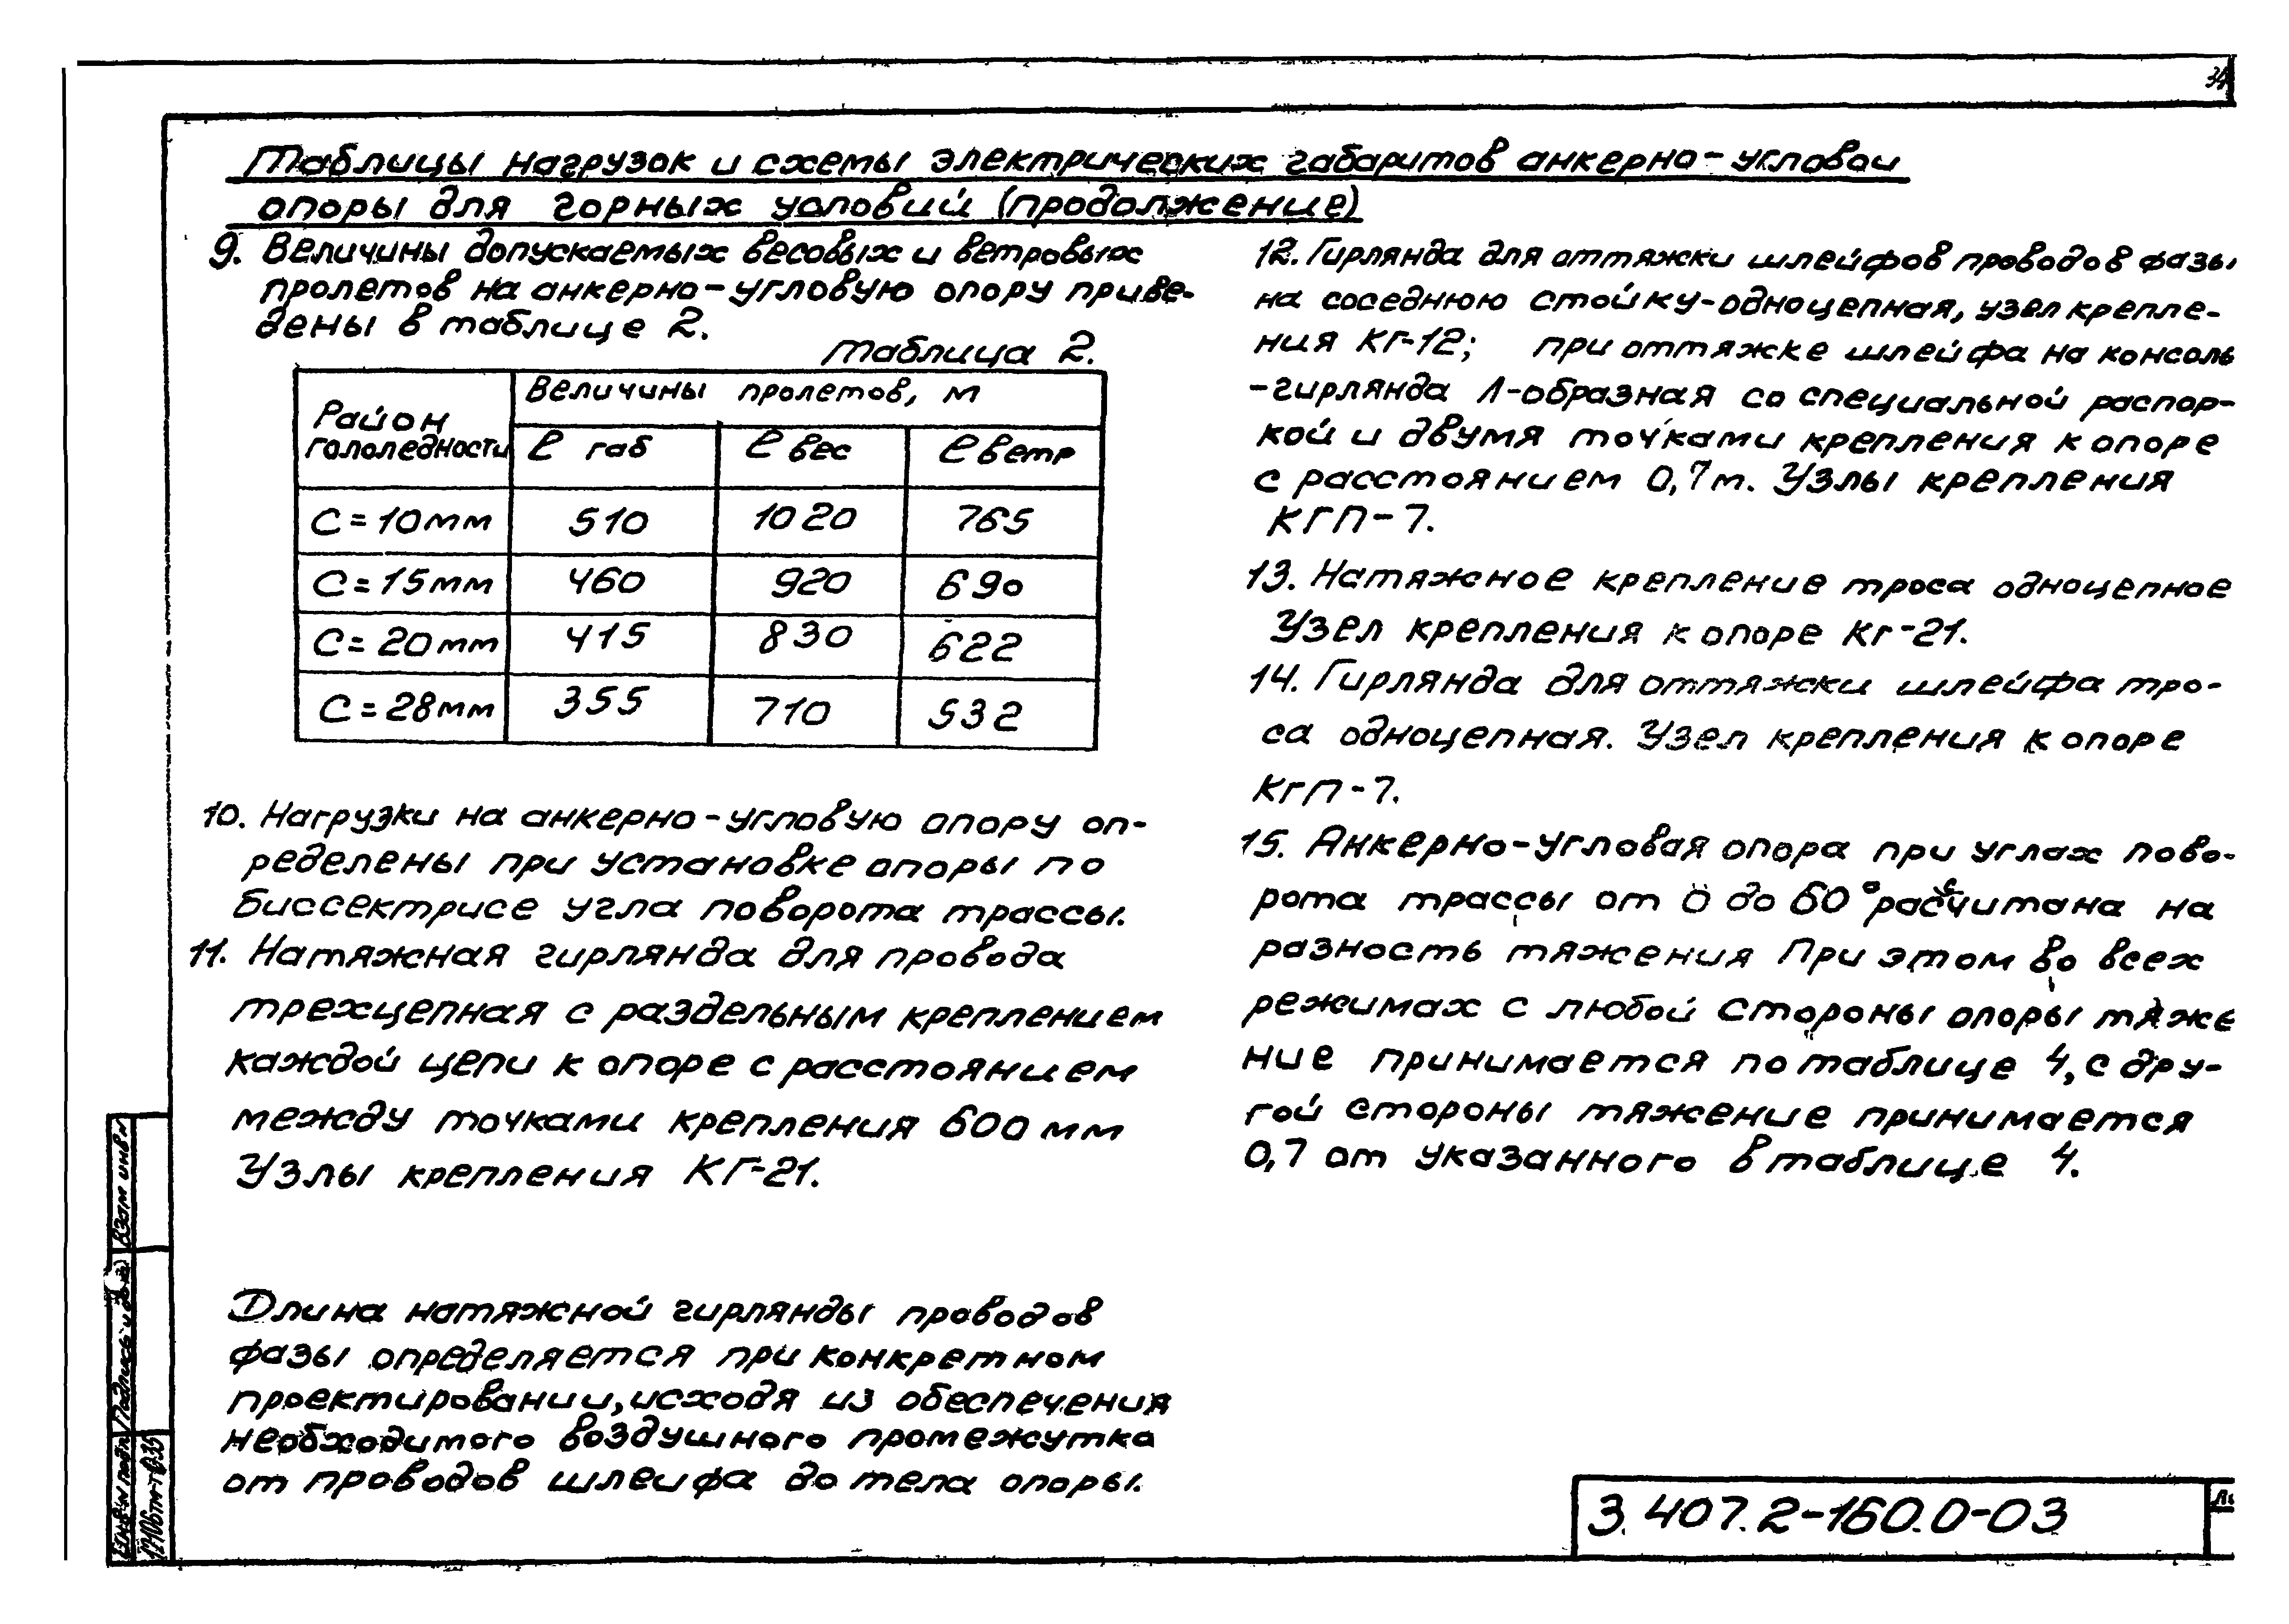 34
Таблицы нагрузок и схемы электрических габаритов анкерно-угловой
опоры для горных условий (продолжение)
9. Величины допускаемых весовых и ветровых
пролетов на анкерно-угловую опору приве-
дены в таблице 2.
Таблица 2.
Район гололедности | Величины пролетов, м
ℓ габ | ℓ вес | ℓ ветр
С=10мм 510 1020 765
С=15мм 460 920 690
С=20мм 415 830 622
С=28мм 355 710 532
10. Нагрузки на анкерно-угловую опору оп-
ределены при установке опоры по
биссектрисе угла поворота трассы.
11. Натяжная гирлянда для провода
трехцепная с раздельным креплением
каждой цепи к опоре с расстоянием
между точками крепления 600 мм
Узлы крепления КГ-21.
Длина натяжной гирлянды проводов
фазы определяется при конкретном
проектировании, исходя из обеспечения
необходимого воздушного промежутка
от проводов шлейфа до тела опоры.
12. Гирлянда для оттяжки шлейфов проводов фазы
на соседнюю стойку-одноцепная, узел крепле-
ния КГ-12; при оттяжке шлейфа на консоль
-гирлянда Л-образная со специальной распор-
кой и двумя точками крепления к опоре
с расстоянием 0,7м. Узлы крепления
КГП-7.
13. Натяжное крепление троса одноцепное
Узел крепления к опоре КГ-21.
14. Гирлянда для оттяжки шлейфа тро-
са одноцепная. Узел крепления к опоре
КГП-7.
15. Анкерно-угловая опора при углах пово-
рота трассы от 0 до 60° расчитана на
разность тяжения При этом во всех
режимах с любой стороны опоры тяже
ние принимается по таблице 4, с дру-
гой стороны тяжение принимается
0,7 от указанного в таблице 4.
Взам инв №
Подпись и дата
Инв № подл
3.407.2-160.0-03